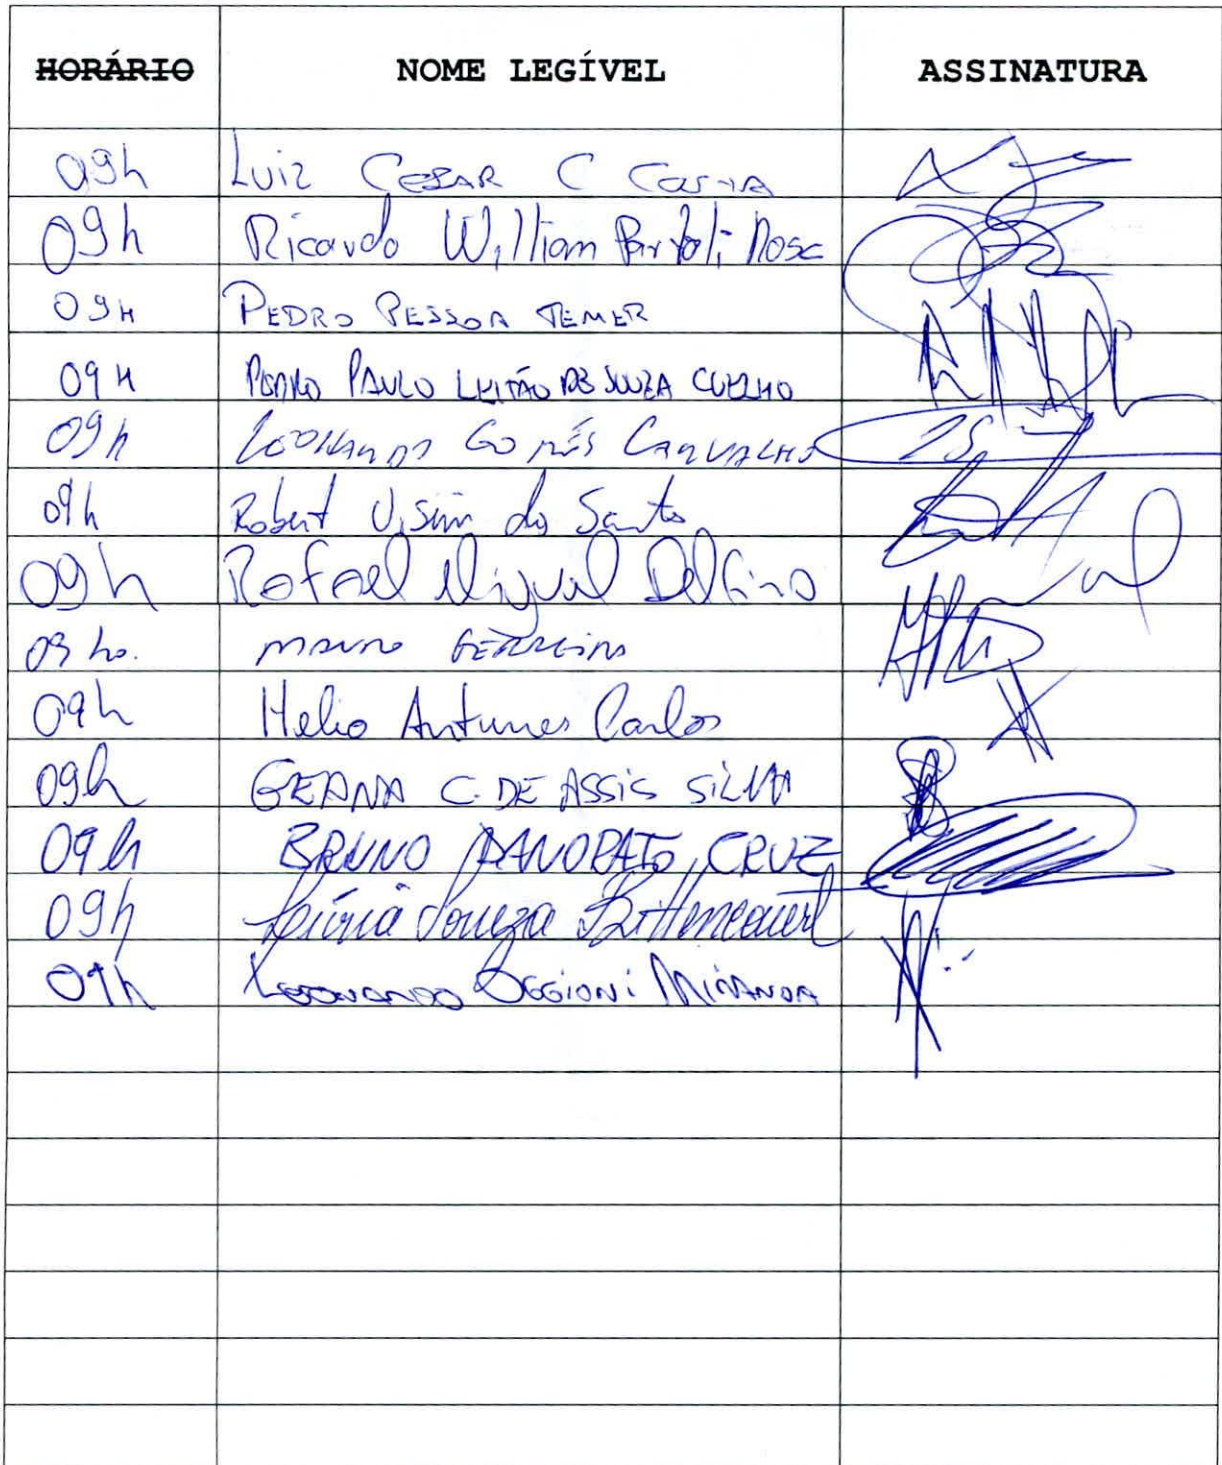 HORÁRIO NOME LEGÍVEL ASSINATURA
09h Luiz CESAR C Costa
09h Ricardo William Partoli Rosa
09H PEDRO PESSOA TEMER
09H PEDRO PAULO LEITÃO DE SOUZA COELHO
09h LEONARDO GOMES CARVALHO
09h Robert Ursini dos Santos
09h Rafael Miguel Delfino
09 hs. MAURO FERREIRA
09h Helio Antunes Carlos
09h GEANA C. DE ASSIS SILVA
09h BRUNO CRUZ
09h Souza Bittencourt
09h Leonardo OGGIONI MIRANDA